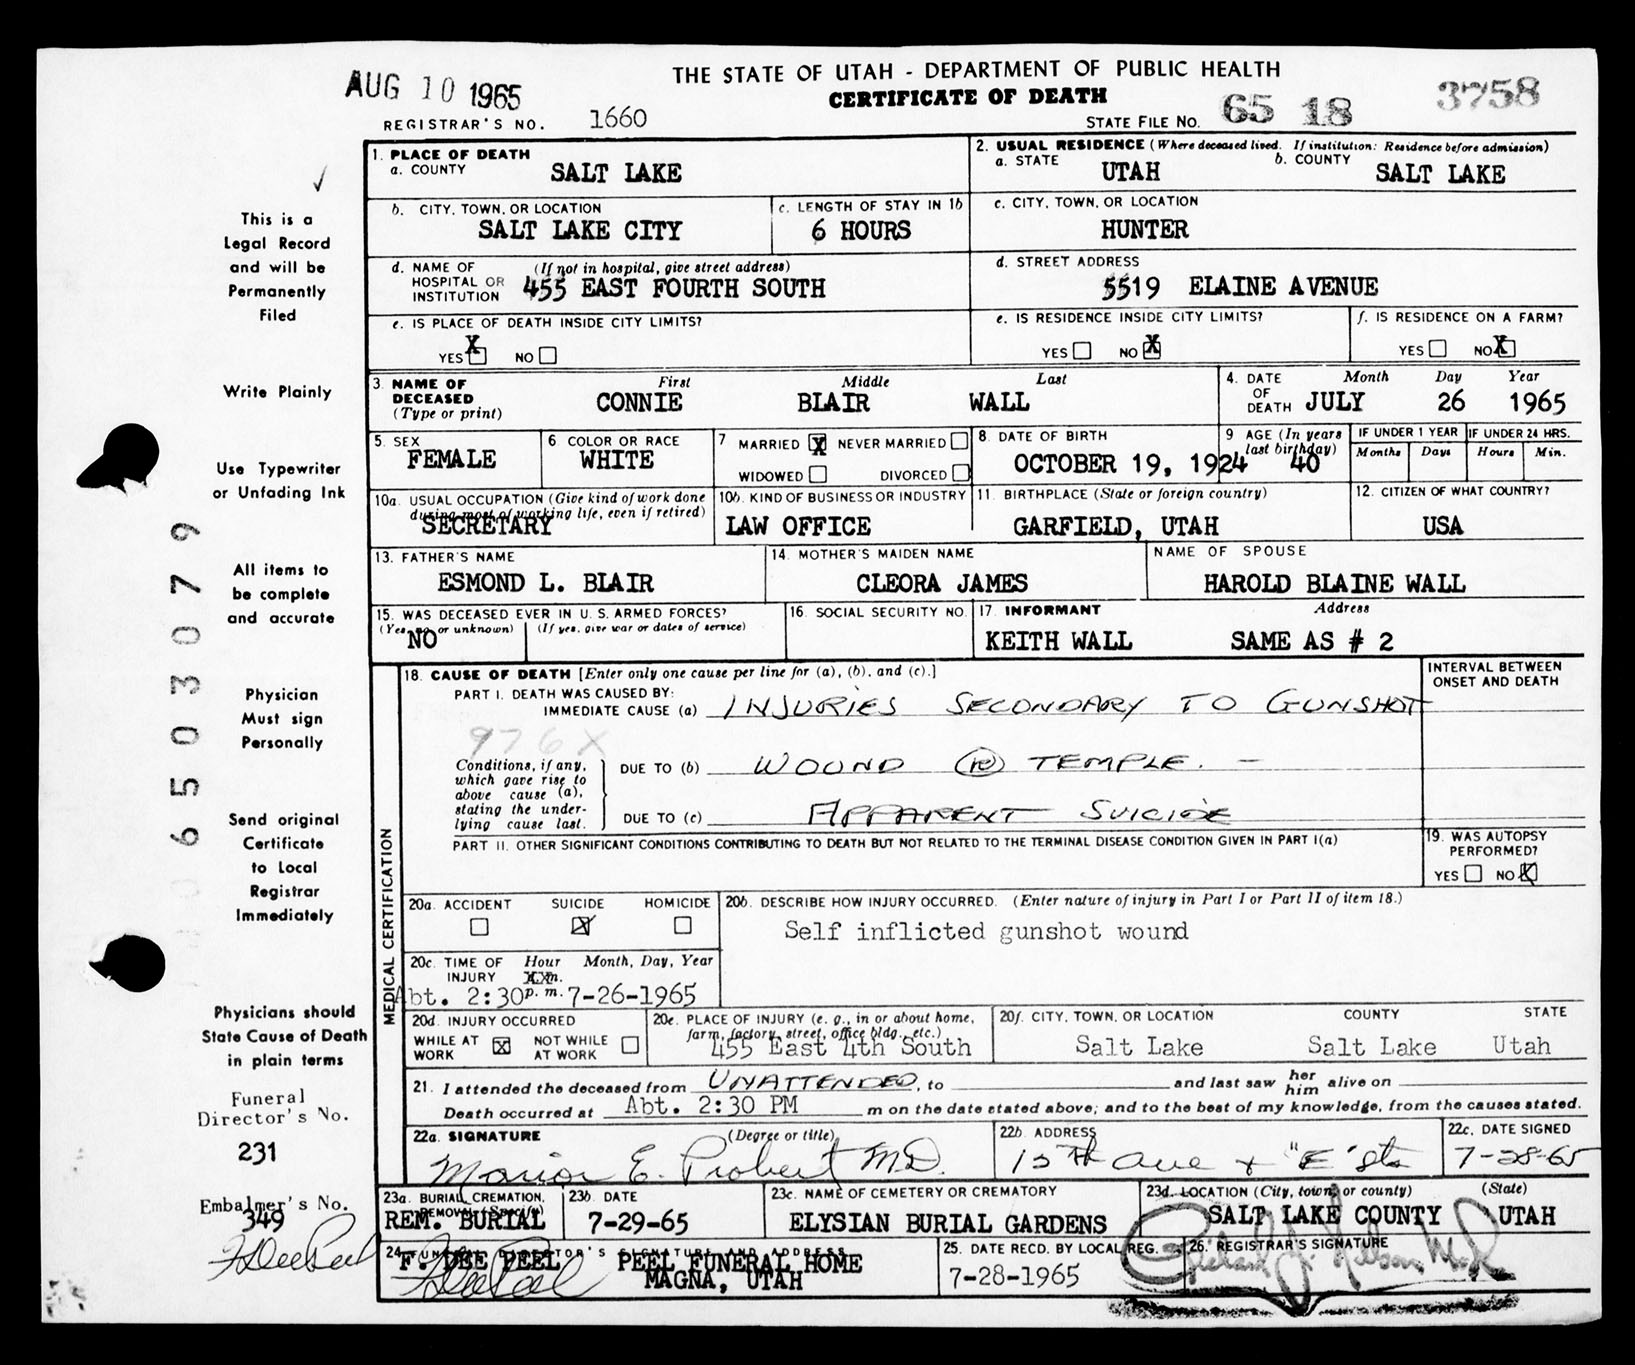 THE STATE OF UTAH - DEPARTMENT OF PUBLIC HEALTH
CERTIFICATE OF DEATH
AUG 10 1965
REGISTRAR'S NO. 1660
STATE FILE NO. 65 18 3758
This is a
Legal Record
and will be
Permanently
Filed
Write Plainly
Use Typewriter
or Unfading Ink
All items to
be complete
and accurate
Physician
Must sign
Personally
Send original
Certificate
to Local
Registrar
Immediately
Physicians should
State Cause of Death
in plain terms
Funeral
Director's No.
231
Embalmer's No.
349
F Dee Peel
6503079
1. PLACE OF DEATH
a. COUNTY SALT LAKE
2. USUAL RESIDENCE (Where deceased lived. If institution: Residence before admission)
a. STATE UTAH b. COUNTY SALT LAKE
b. CITY, TOWN, OR LOCATION
SALT LAKE CITY
c. LENGTH OF STAY IN 1b
6 HOURS
c. CITY, TOWN, OR LOCATION
HUNTER
d. NAME OF HOSPITAL OR INSTITUTION (If not in hospital, give street address)
455 EAST FOURTH SOUTH
d. STREET ADDRESS
5519 ELAINE AVENUE
e. IS PLACE OF DEATH INSIDE CITY LIMITS?
YES X NO
e. IS RESIDENCE INSIDE CITY LIMITS?
YES NO X
f. IS RESIDENCE ON A FARM?
YES NO X
3. NAME OF DECEASED (Type or print)
First Middle Last
CONNIE BLAIR WALL
4. DATE OF DEATH Month Day Year
JULY 26 1965
5. SEX
FEMALE
6 COLOR OR RACE
WHITE
7 MARRIED X NEVER MARRIED
WIDOWED DIVORCED
8. DATE OF BIRTH
OCTOBER 19, 1924
9 AGE (In years last birthday)
40
IF UNDER 1 YEAR IF UNDER 24 HRS.
Months Days Hours Min.
10a. USUAL OCCUPATION (Give kind of work done during most of working life, even if retired)
SECRETARY
10b. KIND OF BUSINESS OR INDUSTRY
LAW OFFICE
11. BIRTHPLACE (State or foreign country)
GARFIELD, UTAH
12. CITIZEN OF WHAT COUNTRY?
USA
13. FATHER'S NAME
ESMOND L. BLAIR
14. MOTHER'S MAIDEN NAME
CLEORA JAMES
NAME OF SPOUSE
HAROLD BLAINE WALL
15. WAS DECEASED EVER IN U.S. ARMED FORCES?
(Yes, no, or unknown) (If yes, give war or dates of service)
NO
16. SOCIAL SECURITY NO.
17. INFORMANT Address
KEITH WALL SAME AS # 2
MEDICAL CERTIFICATION
18. CAUSE OF DEATH [Enter only one cause per line for (a), (b), and (c).]
INTERVAL BETWEEN ONSET AND DEATH
PART I. DEATH WAS CAUSED BY:
IMMEDIATE CAUSE (a) INJURIES SECONDARY TO GUNSHOT
976X
Conditions, if any, which gave rise to above cause (a), stating the underlying cause last.
DUE TO (b) WOUND (R) TEMPLE. -
DUE TO (c) APPARENT SUICIDE
PART II. OTHER SIGNIFICANT CONDITIONS CONTRIBUTING TO DEATH BUT NOT RELATED TO THE TERMINAL DISEASE CONDITION GIVEN IN PART I(a)
19. WAS AUTOPSY PERFORMED?
YES NO X
20a. ACCIDENT SUICIDE HOMICIDE
X
20b. DESCRIBE HOW INJURY OCCURRED. (Enter nature of injury in Part I or Part II of item 18.)
Self inflicted gunshot wound
20c. TIME OF INJURY Hour Month, Day, Year
Abt. 2:30 p.m. 7-26-1965
20d. INJURY OCCURRED
WHILE AT WORK X NOT WHILE AT WORK
20e. PLACE OF INJURY (e. g., in or about home, farm, factory, street, office bldg., etc.)
455 East 4th South
20f. CITY, TOWN, OR LOCATION COUNTY STATE
Salt Lake Salt Lake Utah
21. I attended the deceased from UNATTENDED, to and last saw her him alive on
Death occurred at Abt. 2:30 PM m on the date stated above; and to the best of my knowledge, from the causes stated.
22a. SIGNATURE (Degree or title)
Marion E. Probert M.D.
22b. ADDRESS
15th Ave + "E" Sts
22c. DATE SIGNED
7-28-65
23a. BURIAL, CREMATION, REMOVAL (Specify)
REM. BURIAL
23b. DATE
7-29-65
23c. NAME OF CEMETERY OR CREMATORY
ELYSIAN BURIAL GARDENS
23d. LOCATION (City, town, or county) (State)
SALT LAKE COUNTY UTAH
24. FUNERAL DIRECTOR'S SIGNATURE AND ADDRESS
F. DEE PEEL PEEL FUNERAL HOME
MAGNA, UTAH
F Dee Peel
25. DATE RECD. BY LOCAL REG.
7-28-1965
26. REGISTRAR'S SIGNATURE